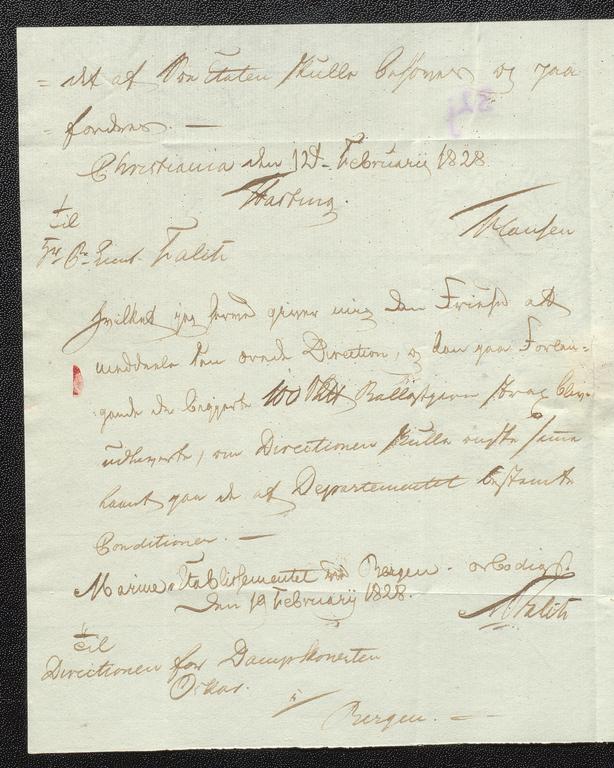 = det af Vos Staten skulle behøves og paa
= fordres. —
Christiania den 12t Februarij 1828.
Harbing. Klausen
til
Hr Pr. Lieut. Falck
hvilket jeg herved giver mig den Frihed at
meddele den ærede Direction, og kan paa Forlan-
gende de begjærte 100 Ballastjern strax blive
udleverte, om Directionen skulle ønske samme
havt paa de af Departementet bestemte
Conditioner. —
Marine Etablissementet ved Bergen. ærbødigst
den 19 Februarij 1828.
Falck
til
Directionen for Dampskonerten
Oskar.
Bergen. —